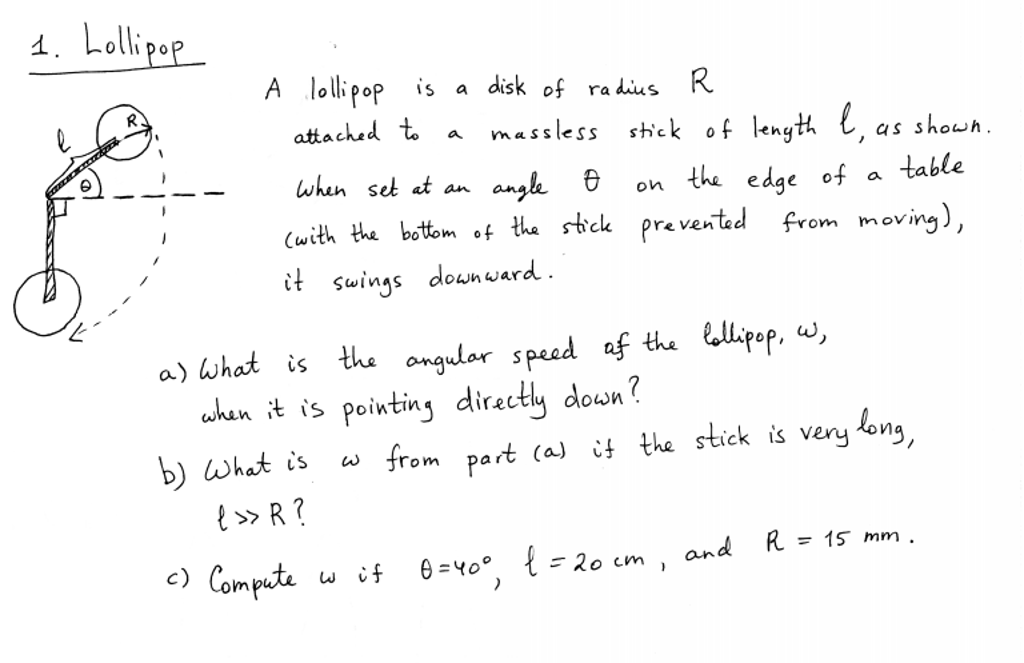 1. Lollipop
A lollipop is a disk of radius R
attached to a massless stick of length l, as shown.
When set at an angle θ on the edge of a table
(with the bottom of the stick prevented from moving),
it swings downward.
R
l
θ
a) What is the angular speed of the lollipop, ω,
when it is pointing directly down?
b) What is ω from part (a) if the stick is very long,
l >> R?
c) Compute ω if θ=40°, l = 20 cm, and R = 15 mm.